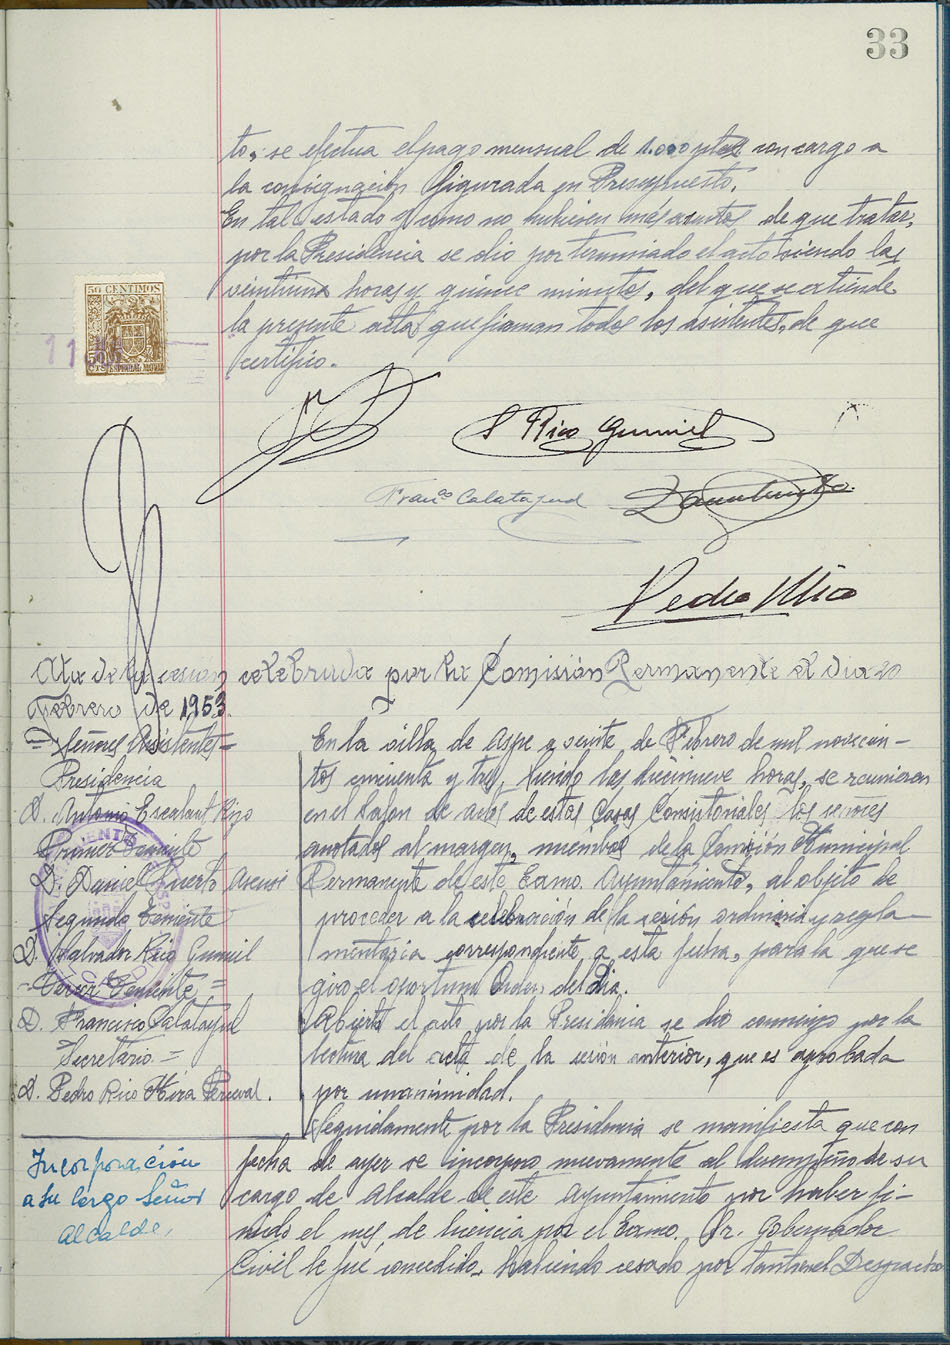 33
to, se efectua el pago mensual de 1.000 ptas con cargo a
la consignación figurada en Presupuesto.
En tal estado y como no hubiesen más asuntos de que tratar,
por la Presidencia se dio por terminado el acto siendo las
veintiuna horas y quince minutos, del que se extiende
la presente acta que firman todos los asistentes, de que
certifico.
50 CENTIMOS
50
CTS ESPECIAL MOVIL
S Rico Gumiel
Franco Calatayud
Pedro Rico
Acta de la sesión celebrada por la Comisión Permanente el dia 20
Febrero de 1953.
Señores Asistentes =
Presidencia
D. Antonio Escalant Rizo
Primer Teniente
D. Daniel Puerto Asensi
Segundo Teniente
D. Salvador Rico Gumiel
- Tercer Teniente =
D. Francisco Calatayud
= Secretario =
D. Pedro Rico Mira Perceval.
En la villa de Aspe a veinte de Febrero de mil novecien-
tos cincuenta y tres, siendo las diecinueve horas, se reunieron
en el Salon de actos de estas Casas Consistoriales los señores
anotados al margen, miembros de la Comisión Municipal
Permanente de este Excmo. Ayuntamiento, al objeto de
proceder a la celebración de la sesión ordinaria y regla-
mentaria correspondiente a esta fecha, para la que se
giro el oportuno Orden del Dia.
Abierto el acto por la Presidencia se dio comienzo por la
lectura del acta de la sesión anterior, que es aprobada
por unanimidad.
Seguidamente por la Presidencia se manifiesta que con
fecha de ayer se incorporo nuevamente al desempeño de su
cargo de Alcalde de este Ayuntamiento por haber fi-
nido el mes de licencia que el Excmo. Sr. Gobernador
Civil le fué concedido. Habiendo cesado por tanto en el Despacho
Incorporación
a su cargo Señor
Alcalde.